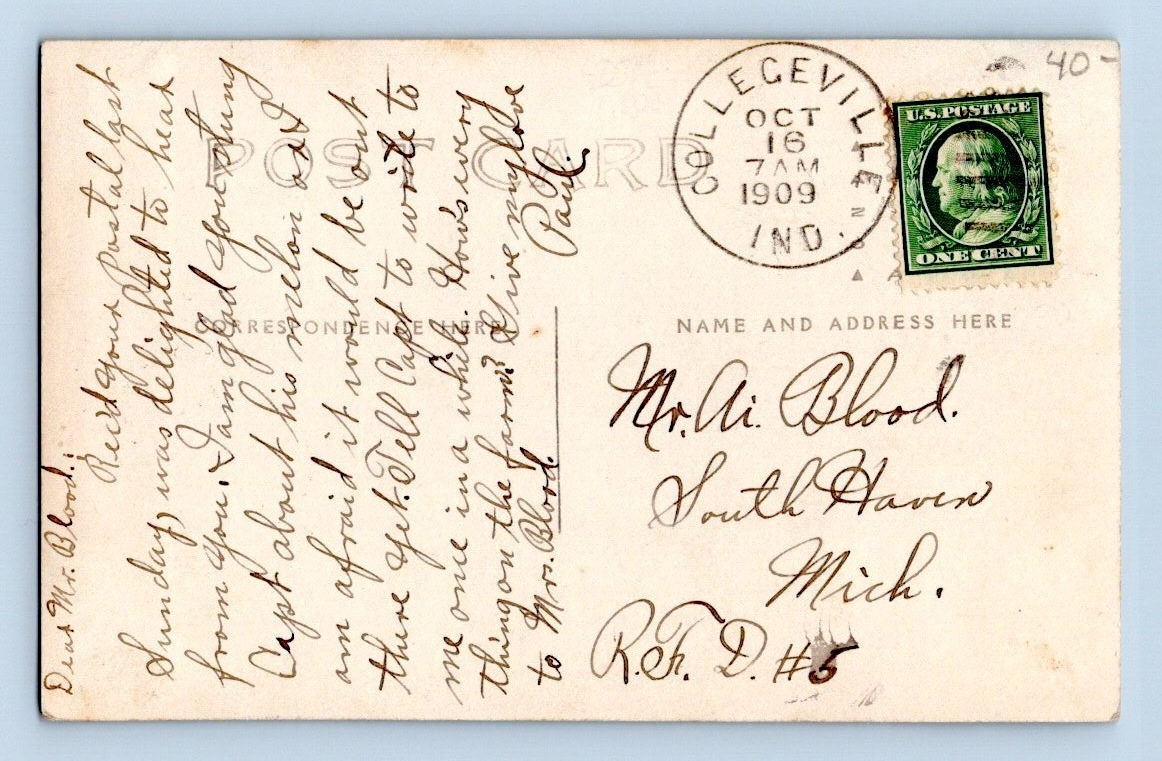 POST CARD
CORRESPONDENCE HERE
Dear Mr. Blood.:
Rec'd your Postal last
Sunday, was delighted to hear
from you. I am glad you stung
Capt about his melon and
am afraid it would be out
there yet. Tell Capt to write to
me one in a while. How's every
thing on the farm? Give my love
to Mrs. Blood. Paul.
COLLEGEVILLE
OCT
16
7 AM
1909
IND.
40-
U.S. POSTAGE
ONE CENT
NAME AND ADDRESS HERE
Mr. Ai. Blood.
South Haven
Mich.
R.F.D. #5